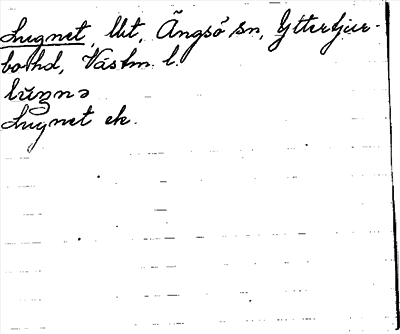 Lugnet, lht, Ängsö sn, Yttertjur-
bo hd, Västm. l.
Lugnet ek.